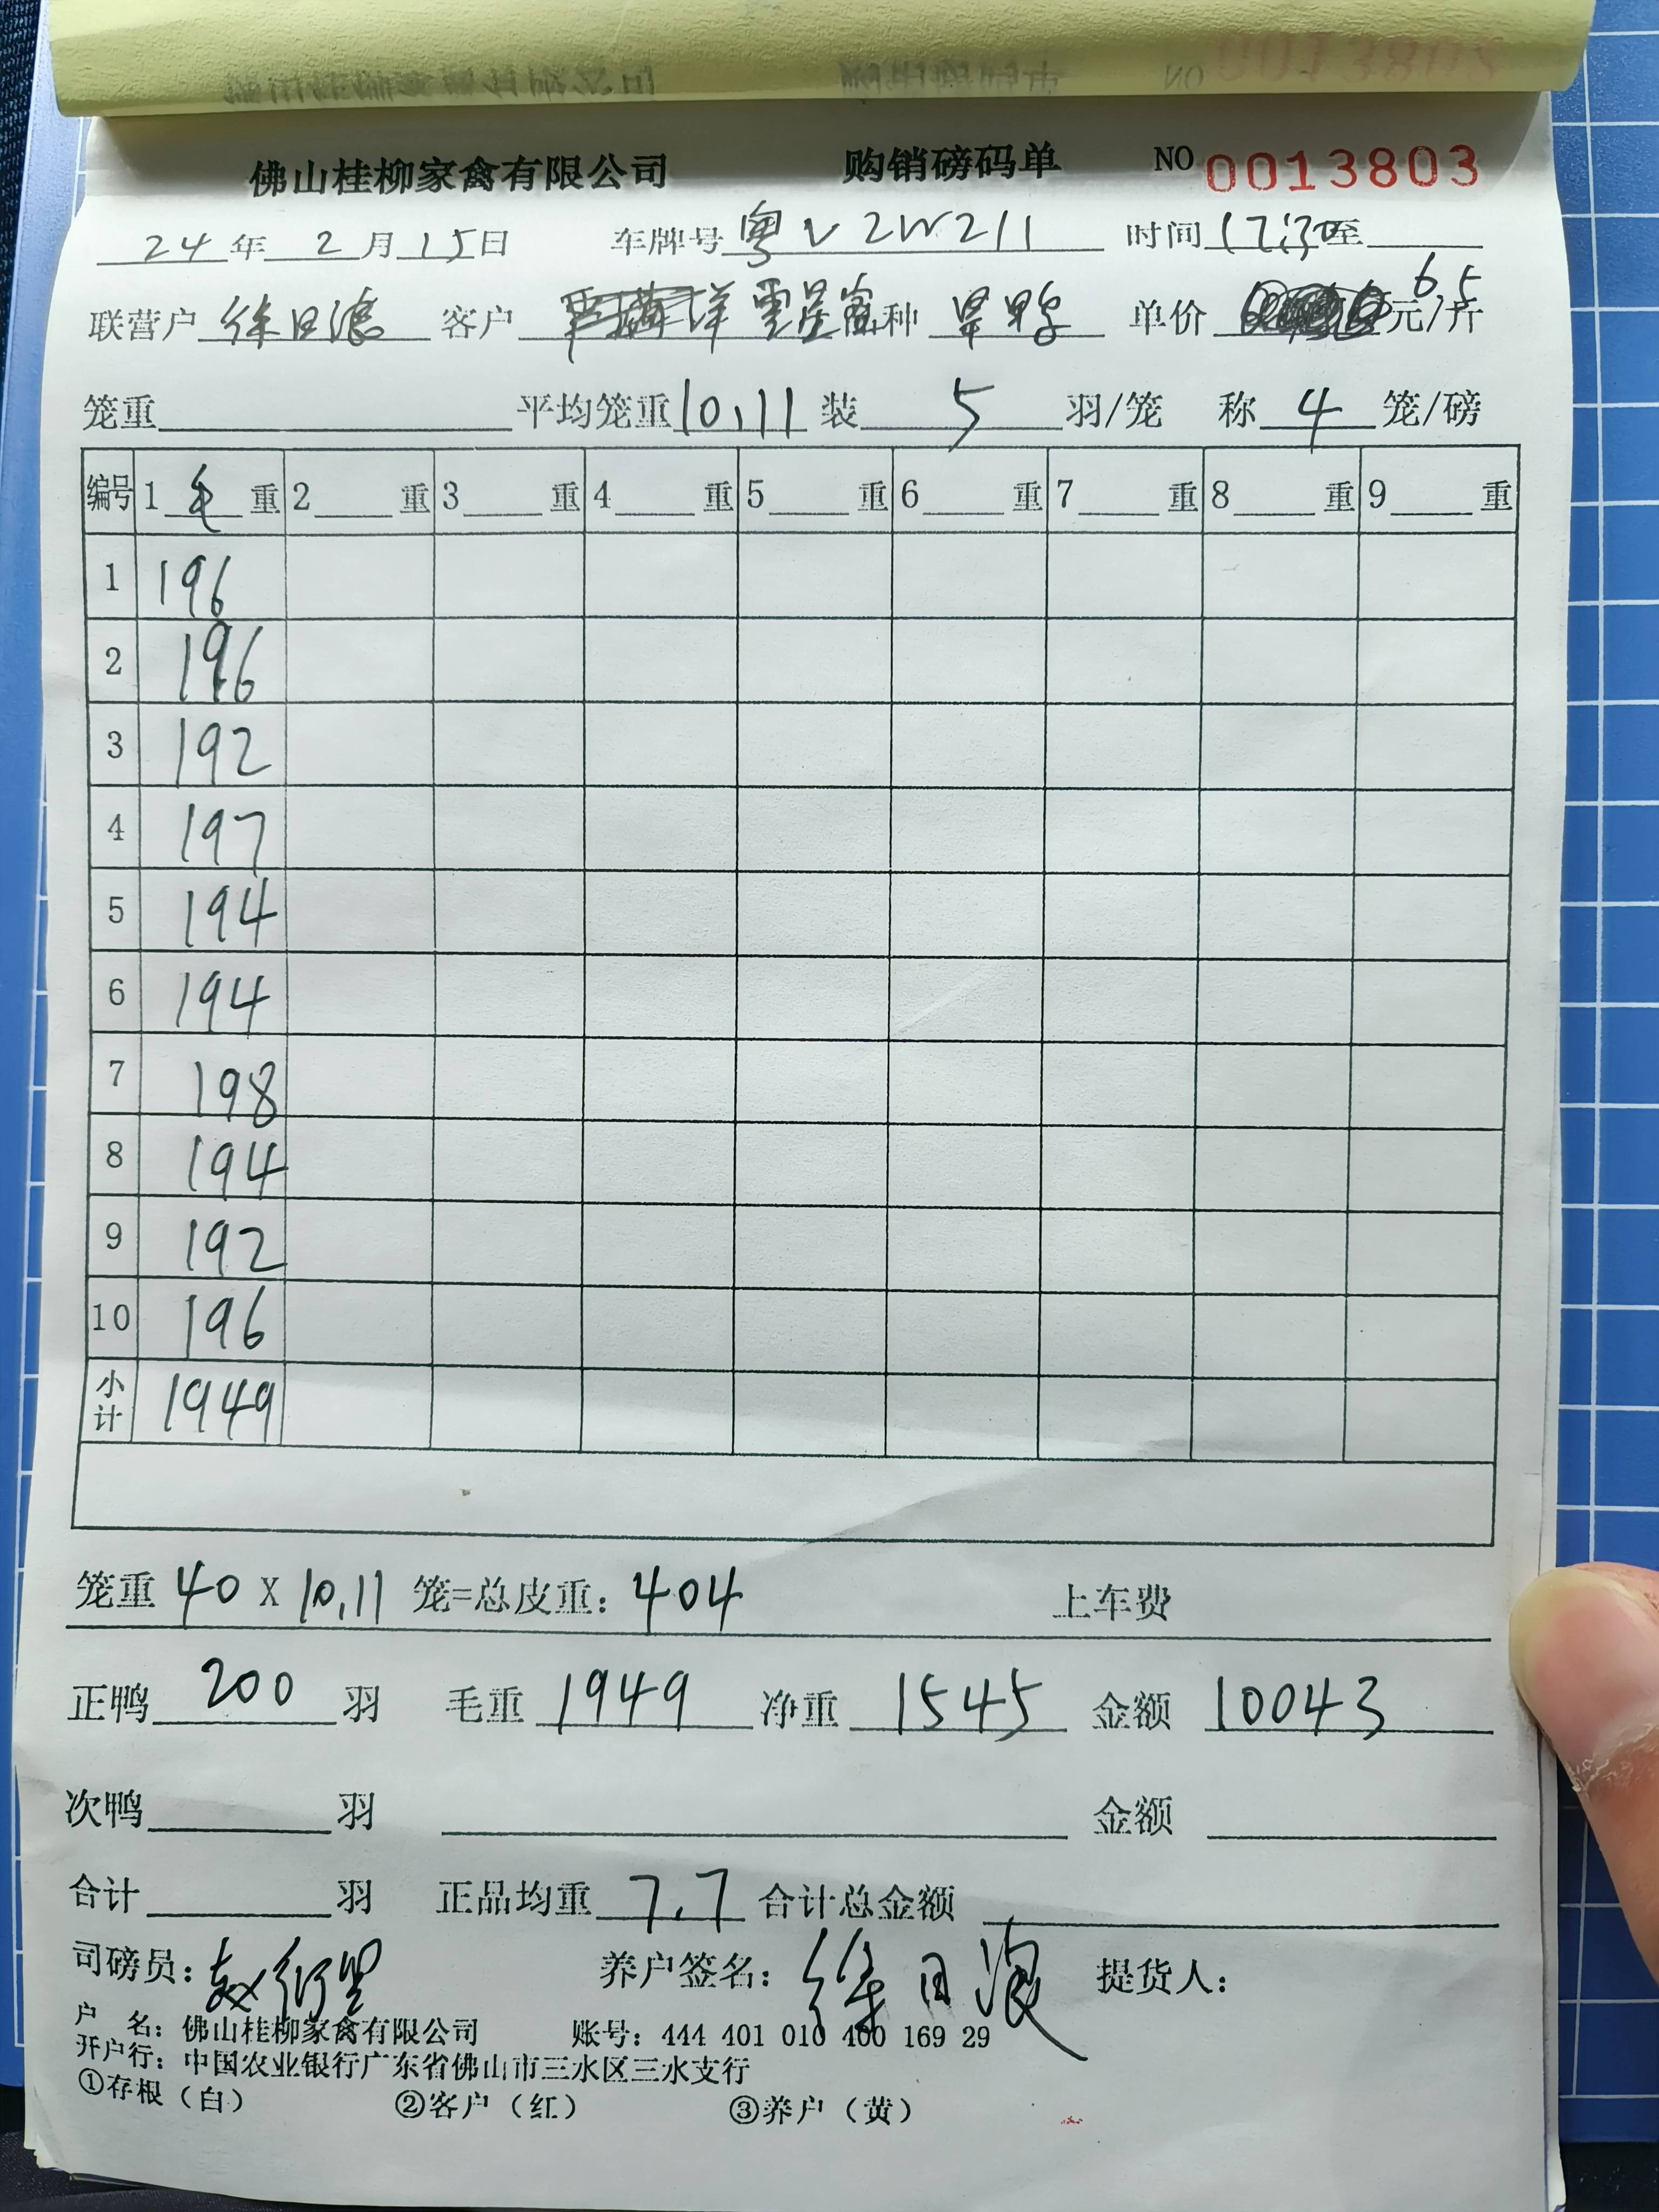 佛山桂柳家禽有限公司 购销磅码单 NO 0013803
24年2月15日 车牌号 粤V2W211 时间 17:30至
联营户 徐日浪 客户 品种 单价 6.5 元/斤
笼重 平均笼重 10.11 装 5 羽/笼 称 4 笼/磅
编号 1毛重 2 重 3 重 4 重 5 重 6 重 7 重 8 重 9 重
1 196
2 196
3 192
4 197
5 194
6 194
7 198
8 194
9 192
10 196
小计 1949
笼重 40 X 10.11 笼=总皮重：404 上车费
正鸭 200 羽 毛重 1949 净重 1545 金额 10043
次鸭 羽 金额
合计 羽 正品均重 7.7 合计总金额
司磅员： 养户签名：徐日浪 提货人：
户 名：佛山桂柳家禽有限公司 账号：444 401 010 400 169 29
开户行：中国农业银行广东省佛山市三水区三水支行
①存根（白） ②客户（红） ③养户（黄）